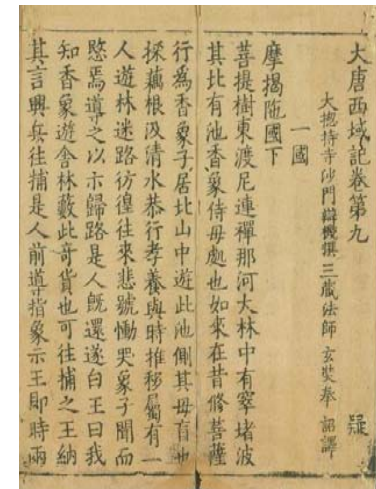 大唐西域記卷第九 疑
大揔持寺沙門辯機撰 三藏法師玄奘奉 詔譯
一國
摩揭陁國下
菩提樹東渡尼連禪那河大林中有窣堵波
其北有池香象侍母處也如來在昔修菩薩
行爲香象子居北山中遊此池側其母盲也
採藕根汲清水恭行孝養與時推移屬有一
人遊林迷路彷徨往來悲號慟哭象子聞而
愍焉導之以示歸路是人旣還遂白王曰我
知香象遊舍林藪此奇貨也可往捕之王納
其言興兵往捕是人前導指象示王即時兩